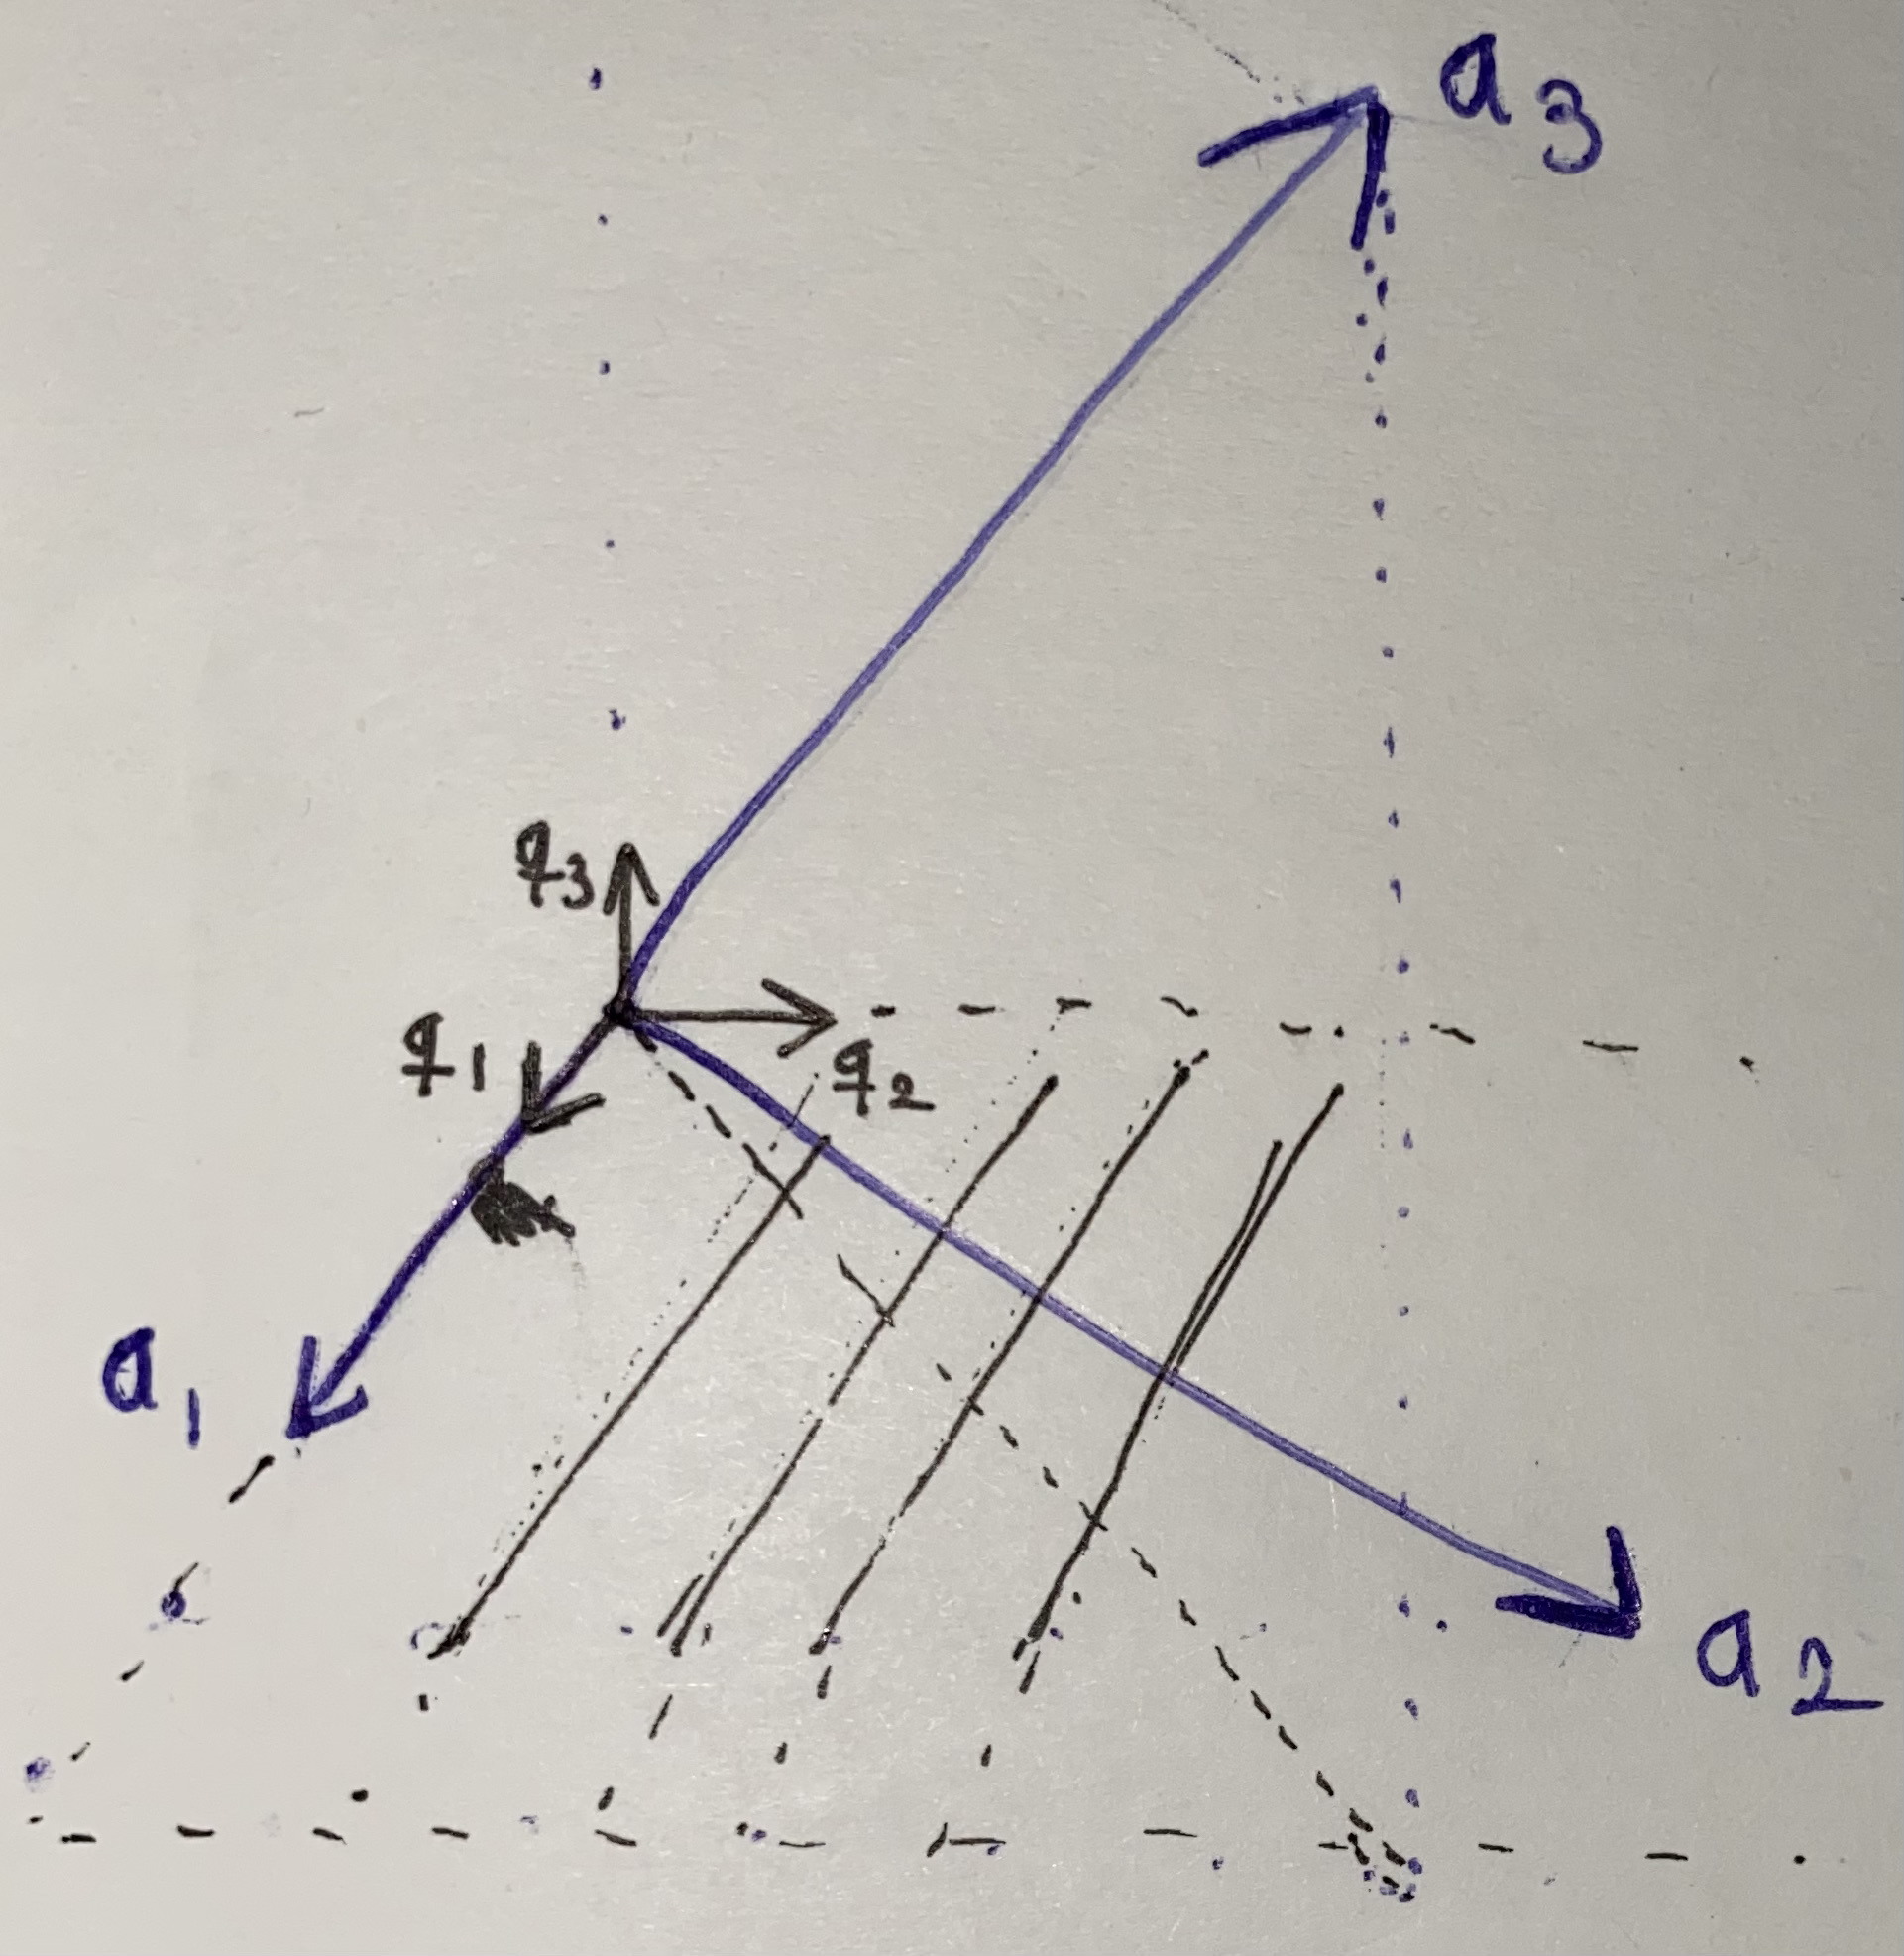 a3
q3
q1
q2
a1
a2